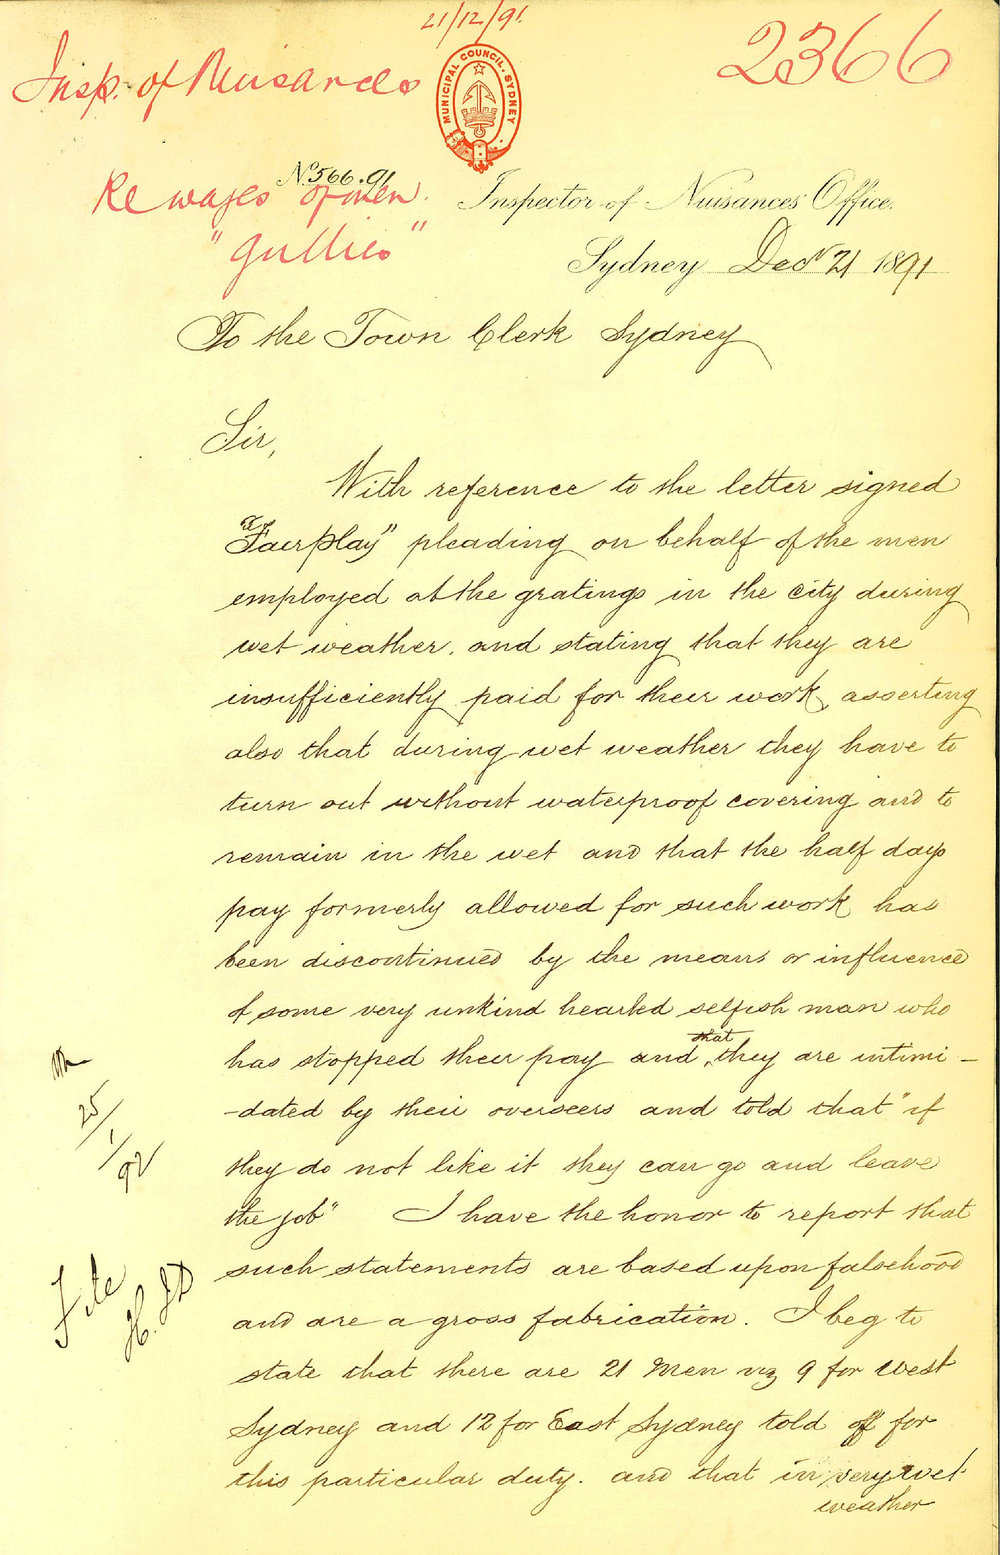 21/12/91.
Insp. of Nuisances
2366
MUNICIPAL COUNCIL. SYDNEY
No 566.91
Re wages of men.
"Gullies"
Inspector of Nuisances Office.
Sydney Decr 21 1891
To the Town Clerk Sydney
Sir,
With reference to the letter signed
"Fairplay" pleading on behalf of the men
employed at the gratings in the city during
wet weather, and stating that they are
insufficiently paid for their work, asserting
also that during wet weather they have to
turn out without waterproof covering and to
remain in the wet and that the half days
pay formerly allowed for such work has
been discontinued by the means or influence
of some very unkind hearted selfish man who
has stopped their pay and that they are intimi-
-dated by their overseers and told that "if
they do not like it they can go and leave
the job" I have the honor to report that
such statements are based upon falsehood
and are a gross fabrication. I beg to
state that there are 21 Men viz 9 for West
Sydney and 12 for East Sydney told off for
this particular duty. and that in very wet
weather
25/1/92
File